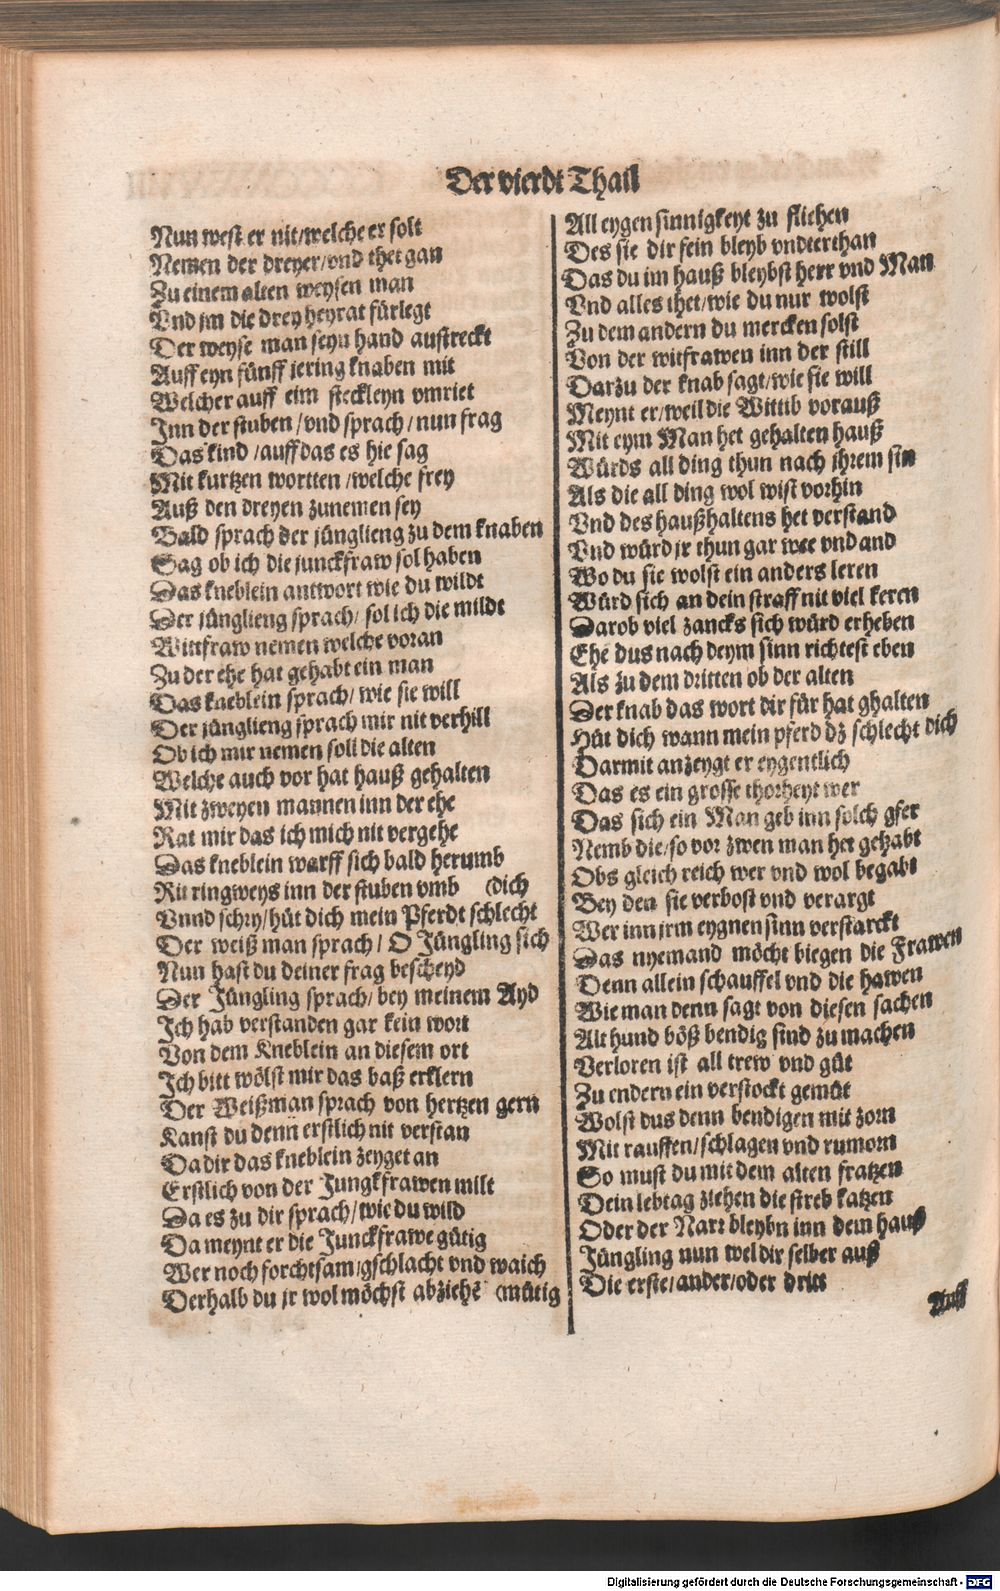 Der vierdt Thail
Nun west er nit/welche er solt
Nemen der dreyer/vnd thet gan
Zu einem alten weysen man
Vnd jm die drey heyrat fürlegt
Der weyse man seyn hand austreckt
Auff eyn fünff jering knaben mit
Welcher auff eim steckleyn vmriet
Inn der stuben/vnd sprach/nun frag
Das kind/auff das es hie sag
Mit kurtzen wortten/welche frey
Auß den dreyen zunemen sey
Bald sprach der jünglieng zu dem knaben
Sag ob ich die junckfraw sol haben
Das kneblein antwort wie du wildt
Der jünglieng sprach/ sol ich die mildt
Wittfraw nemen welche voran
Zu der ehe hat gehabt ein man
Das kneblein sprach/ wie sie will
Der jünglieng sprach mir nit verhill
Ob ich mir nemen soll die alten
Welche auch vor hat hauß gehalten
Mit zweyen mannen inn der ehe
Rat mir das ich mich nit vergehe
Das kneblein warff sich bald herumb
Rit ringweys inn der stuben vmb (dich
Vnnd schry/hüt dich mein Pferdt schlecht
Der weiß man sprach/ O Jüngling sich
Nun hast du deiner frag bescheyd
Der Jüngling sprach/ bey meinem Ayd
Ich hab verstanden gar kein wort
Von dem Kneblein an diesem ort
Ich bitt wölst mir das baß erklern
Der Weißman sprach von hertzen gern
Kanst du denn erstlich nit verstan
Da dir das kneblein zeyget an
Erstlich von der Jungkfrawen milt
Da es zu dir sprach/wie du wild
Da meynt er die Junckfrawe gütig
Wer noch forchtsam/gschlacht vnd waich
Derhalb du jr wol möchst abziehē (mütig
All eygen sinnigkeyt zu fliehen
Des sie dir fein bleyb vndterthan
Das du im hauß bleybst herr vnd Man
Vnd alles thet/wie du nur wolst
Zu dem andern du mercken solst
Von der witfrawen inn der still
Darzu der knab sagt/wie sie will
Meynt er/weil die Wittib vorauß
Mit eym Man het gehalten hauß
Würds all ding thun nach ihrem sin
Als die all ding wol wist vorhin
Vnd des haußhaltens het verstand
Vnd würd jr thun gar wee vnd and
Wo du sie wolst ein anders leren
Würd sich an dein straff nit viel keren
Darob viel zancks sich würd erheben
Ehe dus nach deym sinn richtest eben
Als zu dem dritten ob der alten
Der knab das wort dir für hat ghalten
Hüt dich wann mein pferd dz schlecht dich
Darmit anzeygt er eygentlich
Das es ein grosse thorheyt wer
Das sich ein Man geb inn solch gfer
Nemb die/so vor zwen man het gehabt
Obs gleich reich wer vnd wol begabt
Bey den sie verbost vnd verargt
Wer inn jrm eygnen sinn verstarckt
Das nyemand möcht biegen die Frawen
Denn allein schauffel vnd die hawen
Wie man denn sagt von diesen sachen
Alt hund böß bendig sind zu machen
Verloren ist all trew vnd güt
Zu endern ein verstockt gemüt
Wolst dus denn bendigen mit zorn
Mit rauffen/schlagen vnd rumorn
So must du mit dem alten fratzen
Dein lebtag ziehen die streb katzen
Oder der Narr bleybn inn dem hauß
Jüngling nun wel dir selber auß
Die erste/ander/oder dritt
Auff
Digitalisierung gefördert durch die Deutsche Forschungsgemeinschaft - DFG